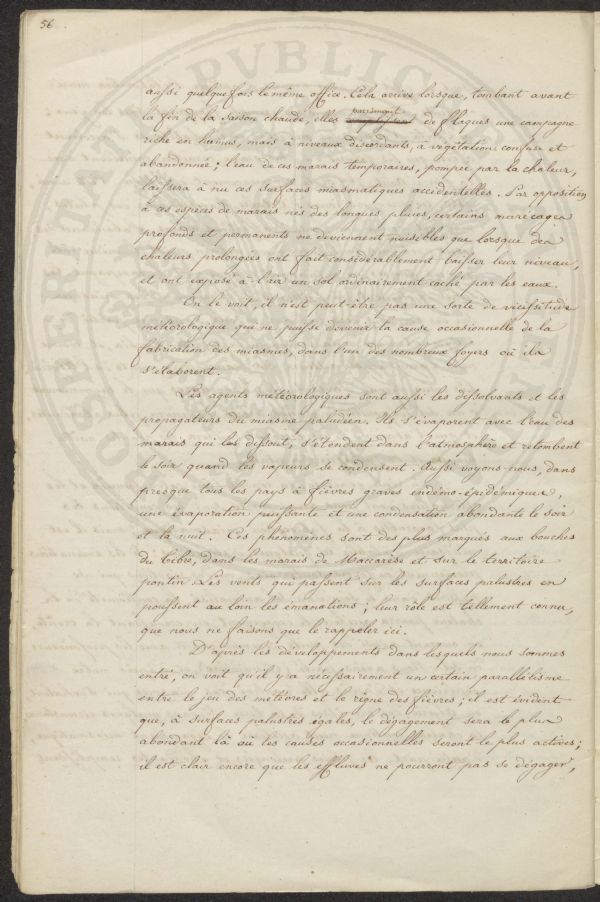 56
aussi quelquefois le même office. Cela arrive lorsque, tombant avant
la fin de la saison chaude, elles parsèment de flaques une campagne
riche en humus, mais à niveaux discordants, à végétation confuse et
abandonnée; l'eau de ces marais temporaires, pompée par la chaleur,
laissera à nu ces surfaces miasmatiques accidentelles. Par opposition
à ces espèces de marais nés des longues pluies, certains marécages
profonds et permanents ne deviennent nuisibles que lorsque des
chaleurs prolongées ont fait considérablement baisser leur niveau,
et ont exposé à l'air un sol ordinairement caché par les eaux.
On le voit, il n'est peut-être pas une sorte de vicissitude
météorologique qui ne puisse devenir la cause occasionnelle de la
fabrication des miasmes, dans l'un des nombreux foyers où ils
s'élaborent.
Les agents météorologiques sont aussi les dissolvants et les
propagateurs du miasme paludéen. Ils s'évaporent avec l'eau des
marais qui les dissout, s'étendent dans l'atmosphère et retombent
le soir quand les vapeurs se condensent. Aussi voyons nous, dans
presque tous les pays à fièvres graves endémo-épidémiques,
une évaporation puissante et une condensation abondante le soir
et la nuit. Ces phénomènes sont des plus marqués aux bouches
du Tibre, dans les marais de Maccarèse et sur le territoire
pontin. Les vents qui passent sur les surfaces palustres en
poussent au loin les émanations; leur rôle est tellement connu,
que nous ne faisons que le rappeler ici.
D'après les développements dans lesquels nous sommes
entré, on voit qu'il y a nécessairement un certain parallélisme
entre le jeu des météores et le règne des fièvres; il est évident
que, à surfaces palustres égales, le dégagement sera le plus
abondant là où les causes occasionnelles seront le plus actives;
il est clair encore que les effluves ne pourront pas se dégager,